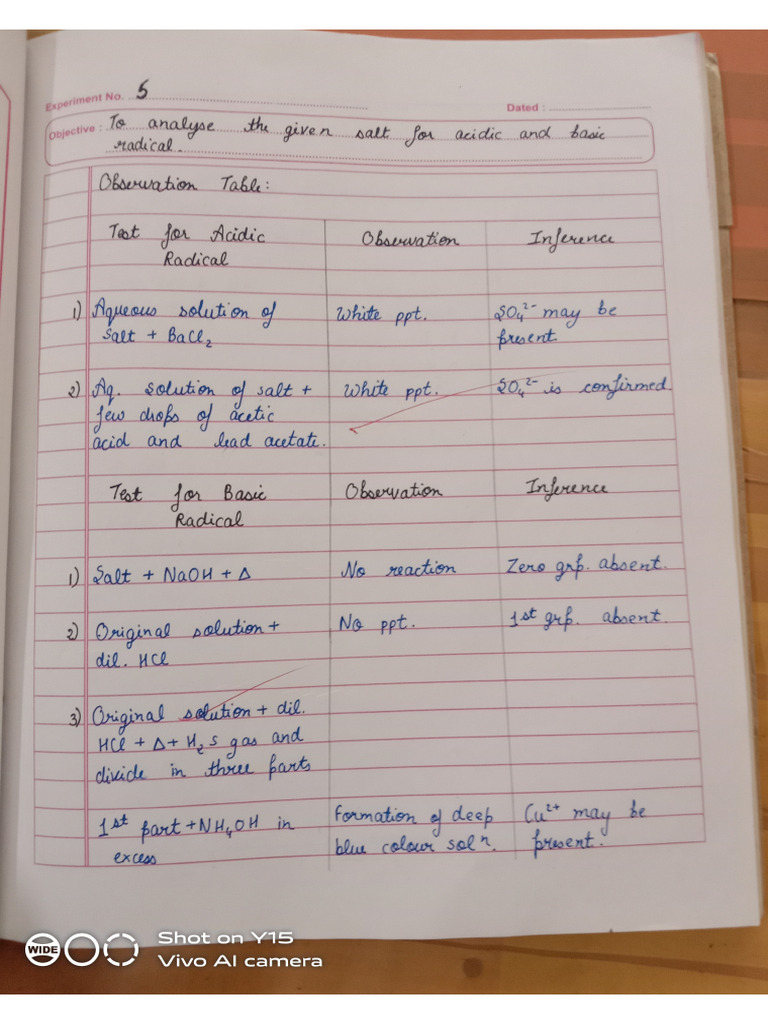 Experiment No. 5
Dated :
Objective : To analyse the given salt for acidic and basic
radical.
Observation Table:
Test for Acidic
Radical
Observation
Inference
1) Aqueous solution of
Salt + BaCl2
White ppt.
SO4²⁻ may be
present
2) Aq. Solution of salt +
few drops of acetic
acid and lead acetate.
White ppt.
SO4²⁻ is confirmed
Test for Basic
Radical
Observation
Inference
1) Salt + NaOH + Δ
No reaction
Zero grp. absent.
2) Original solution +
dil. HCl
No ppt.
1st grp. absent.
3) Original solution + dil.
HCl + Δ + H2S gas and
divide in three parts
1st part + NH4OH in
excess
Formation of deep
blue colour solⁿ.
Cu²⁺ may be
present.
WIDE
Shot on Y15
Vivo AI camera